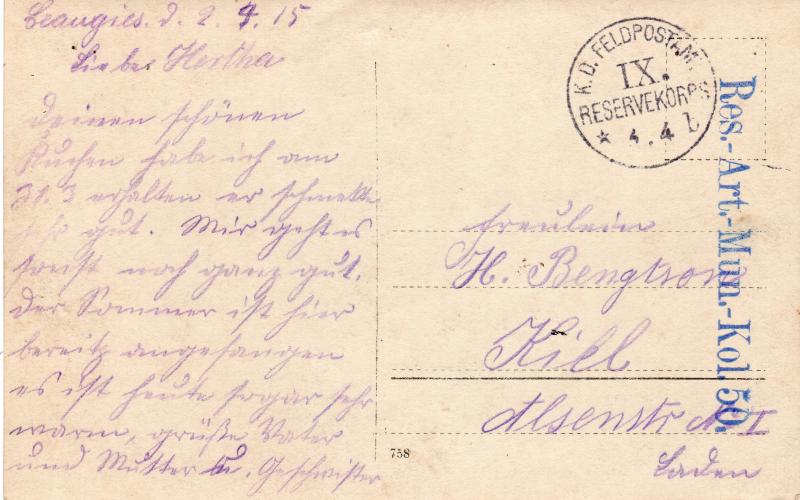 Beaugies. d. 2. 4. 15
Liebe Hertha
Deinen schönen
Kuchen habe ich am
31. 3 erhalten er schmekte
sehr gut. Mir geht es
sonst noch ganz gut.
Der Sommer ist hier
bereitz angefangen
es ist heute sogar sehr
warm, grüße Vater
und Mutter u. Geschwister
K. D. FELDPOSTAMT
IX.
RESERVEKORPS
* 4. 4 b
Res.-Art.-Mun.-Kol. 50.
Freulein
H. Bengtson
Kiel
Alsenstr No I
Laden
758